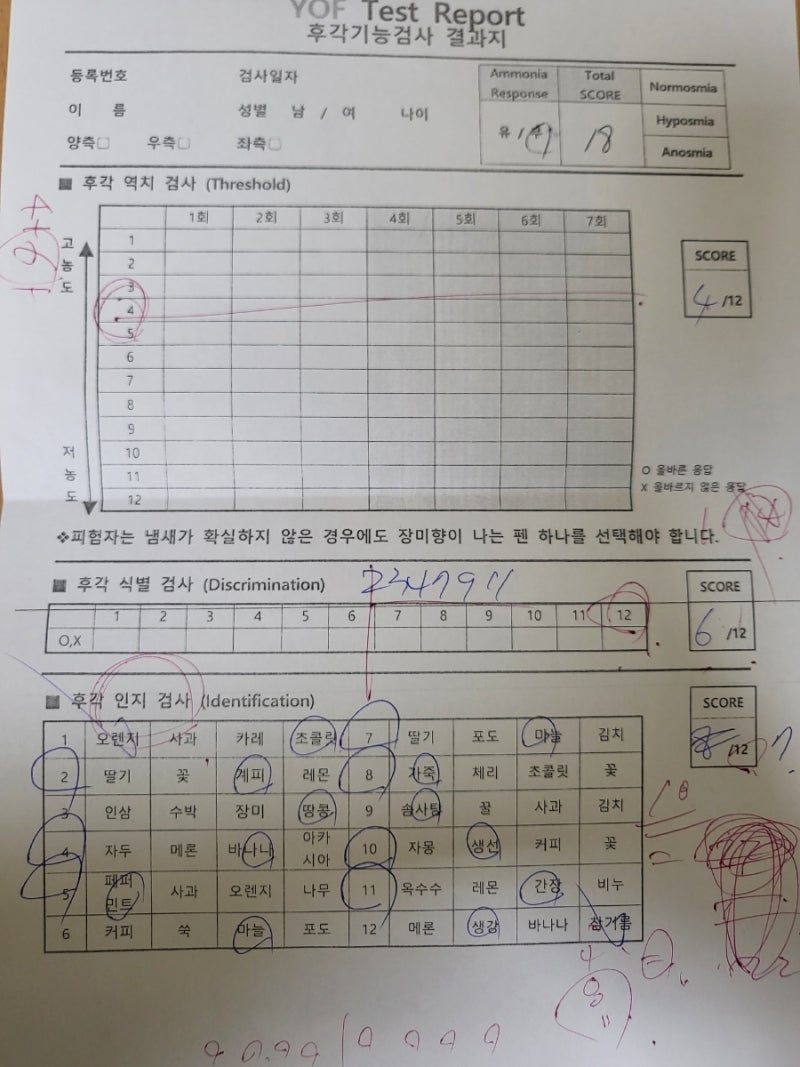 YOF Test Report
후각기능검사 결과지
등록번호 검사일자
이 름 성별 남 / 여 나이
양측□ 우측□ 좌측□
Ammonia Response Total SCORE Normosmia
유 / 무 18 Hyposmia
Anosmia
■ 후각 역치 검사 (Threshold)
1회 2회 3회 4회 5회 6회 7회
고농도
1
2
3
4
5
6
7
8
9
10
11
12
저농도
SCORE
4 /12
O 올바른 응답
X 올바르지 않은 응답
❖피험자는 냄새가 확실하지 않은 경우에도 장미향이 나는 펜 하나를 선택해야 합니다.
■ 후각 식별 검사 (Discrimination)
SCORE
1 2 3 4 5 6 7 8 9 10 11 12
O,X
6 /12
■ 후각 인지 검사 (Identification)
SCORE
8 /12 7
1 오렌지 사과 카레 초콜릿 7 딸기 포도 마늘 김치
2 딸기 꽃 계피 레몬 8 가죽 체리 초콜릿 꽃
3 인삼 수박 장미 땅콩 9 솜사탕 꿀 사과 김치
4 자두 메론 바나나 아카시아 10 자몽 생선 커피 꽃
5 페퍼민트 사과 오렌지 나무 11 옥수수 레몬 간장 비누
6 커피 쑥 마늘 포도 12 메론 생강 바나나 참기름